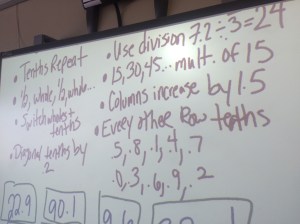 • Tenths Repeat
• ½, whole, ½, whole...
• Switch whole
tenths
• Diagonal tenths by
2
• Use division 7.2÷3=24
• 15,30,45... mult. of 15
• Columns increase by 1.5
• Every other Row tenths
.5, .8, .1, .4, .7
.0, .3, .6, .9, .2
22.9
90.1